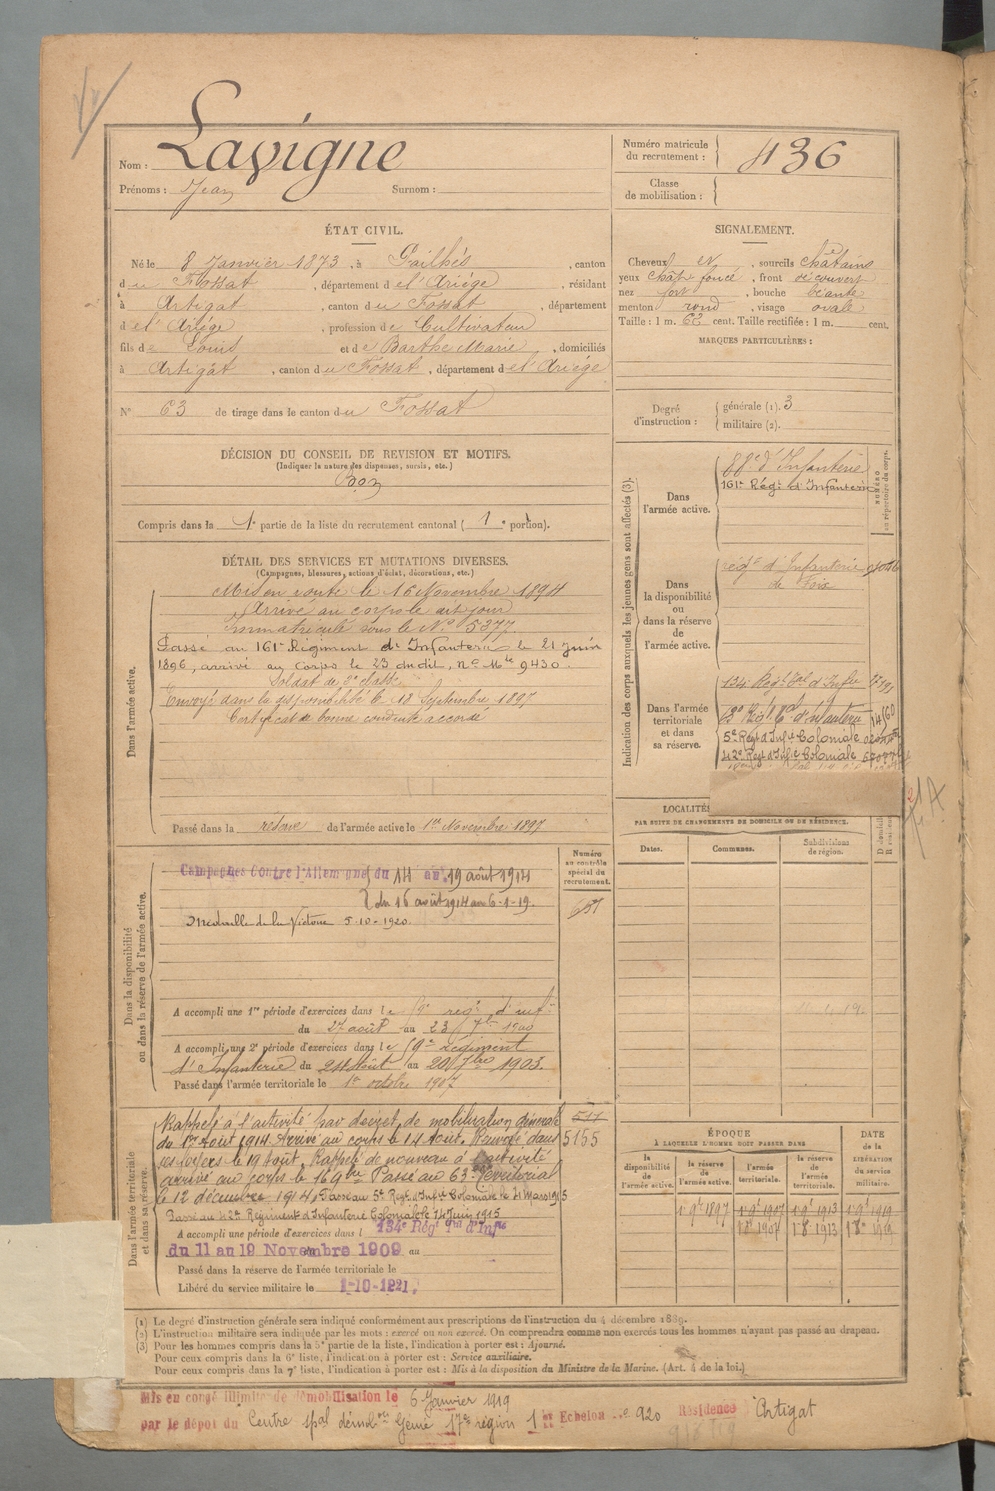 Nom : Lavigne
Prénoms : Jean Surnom :
Numéro matricule du recrutement : 436
Classe de mobilisation :
ÉTAT CIVIL.
Né le 8 Janvier 1873, à Pailhés, canton
du Fossat, département de l'Ariége, résidant
à Artigat, canton du Fossat, département
de l'Ariége, profession de Cultivateur
fils de Louis et de Barthe Marie, domiciliés
à Artigat, canton du Fossat, département de l'Ariége
N° 63 de tirage dans le canton du Fossat
SIGNALEMENT.
Cheveux N, sourcils châtains
yeux chât. foncé, front découvert
nez fort, bouche béante
menton rond, visage ovale
Taille : 1 m. 62 cent. Taille rectifiée : 1 m. cent.
MARQUES PARTICULIÈRES :
Degré d'instruction : générale (1). 3
militaire (2).
DÉCISION DU CONSEIL DE REVISION ET MOTIFS.
(Indiquer la nature des dispenses, sursis, etc.)
Bon
Compris dans la 1e partie de la liste du recrutement cantonal ( 1e portion).
DÉTAIL DES SERVICES ET MUTATIONS DIVERSES.
(Campagnes, blessures, actions d'éclat, décorations, etc.)
Dans l'armée active.
Mis en route le 16 Novembre 1894
Arrivé au corps le dit jour
Immatriculé sous le N° 5377
Passé au 161e Régiment d'Infanterie le 21 juin
1896, arrivé au corps le 23 dudit, n° Mle 9430.
Soldat de 2e classe
Envoyé dans la disponibilité le 18 Septembre 1897
Certificat de bonne conduite accordé
Passé dans la réserve de l'armée active le 1er Novembre 1897
Indication des corps auxquels les jeunes gens sont affectés (3).
NUMÉRO au répertoire du corps.
Dans l'armée active.
88e d'Infanterie
161e Régt d'Infanterie
Dans la disponibilité ou dans la réserve de l'armée active.
régt d'Infanterie
de Foix
Dans l'armée territoriale et dans sa réserve.
134e Régt tal d'Infie
d'infanterie
5e Régt d'Infie Coloniale
42e Régt d'Infie Coloniale
LOCALITÉS
PAR SUITE DE CHANGEMENTS DE DOMICILE OU DE RÉSIDENCE.
Dates. Communes. Subdivisions de région.
Dans la disponibilité ou dans la réserve de l'armée active.
Numéro au contrôle spécial du recrutement.
Campagnes Contre l'Allemagne du 14 au 19 août 1914
du 16 août 1914 au 6-1-19.
Medaille de la Victoire 5-10-1920
A accompli une 1re période d'exercices dans le régt d'inft
du 27 août au 23 7bre 1900
A accompli une 2e période d'exercices dans le Régiment
d'Infanterie du 24 Août au 20 7bre 1903.
Passé dans l'armée territoriale le 1er octobre 1907
Dans l'armée territoriale et dans sa réserve.
Rappelé à l'activité par decret de mobilisation générale
du 1er Août 1914. Arrivé au corps le 14 Août. Renvoyé dans
ses foyers le 19 Août. Rappelé de nouveau à l'activité
arrivé au corps le 16 9bre Passé au 63e Territorial
le 12 décembre 1914, Passé au 5e Regt d'Infie Coloniale le 21 Mars 1915
Passé au 42e Régiment d'Infanterie Coloniale le 14 Juin 1915
5155
A accompli une période d'exercices dans l 134e Régt Tal d'Infie
du 11 au 19 Novembre 1909 au
Passé dans la réserve de l'armée territoriale le
Libéré du service militaire le 1-10-1921.
ÉPOQUE
À LAQUELLE L'HOMME DOIT PASSER DANS
DATE de la LIBÉRATION du service militaire.
la disponibilité de l'armée active. la réserve de l'armée active. l'armée territoriale. la réserve de l'armée territoriale.
1r 9e 1897 1r 9e 1907 1r 9e 1913 1r 9e 1919
1907 1913 1919
(1) Le degré d'instruction générale sera indiqué conformément aux prescriptions de l'instruction du 4 décembre 1889.
(2) L'instruction militaire sera indiquée par les mots : exercé ou non exercé. On comprendra comme non exercés tous les hommes n'ayant pas passé au drapeau.
(3) Pour les hommes compris dans la 5e partie de la liste, l'indication à porter est : Ajourné.
Pour ceux compris dans la 6e liste, l'indication à porter est : Service auxiliaire.
Pour ceux compris dans la 7e liste, l'indication à porter est : Mis à la disposition du Ministre de la Marine. (Art. 4 de la loi.)
Mis en congé illimité de démobilisation le 6 Janvier 1919
par le dépôt du Centre spal démobon Génie 17e région 1er Echelon n° 920 Résidence Artigat